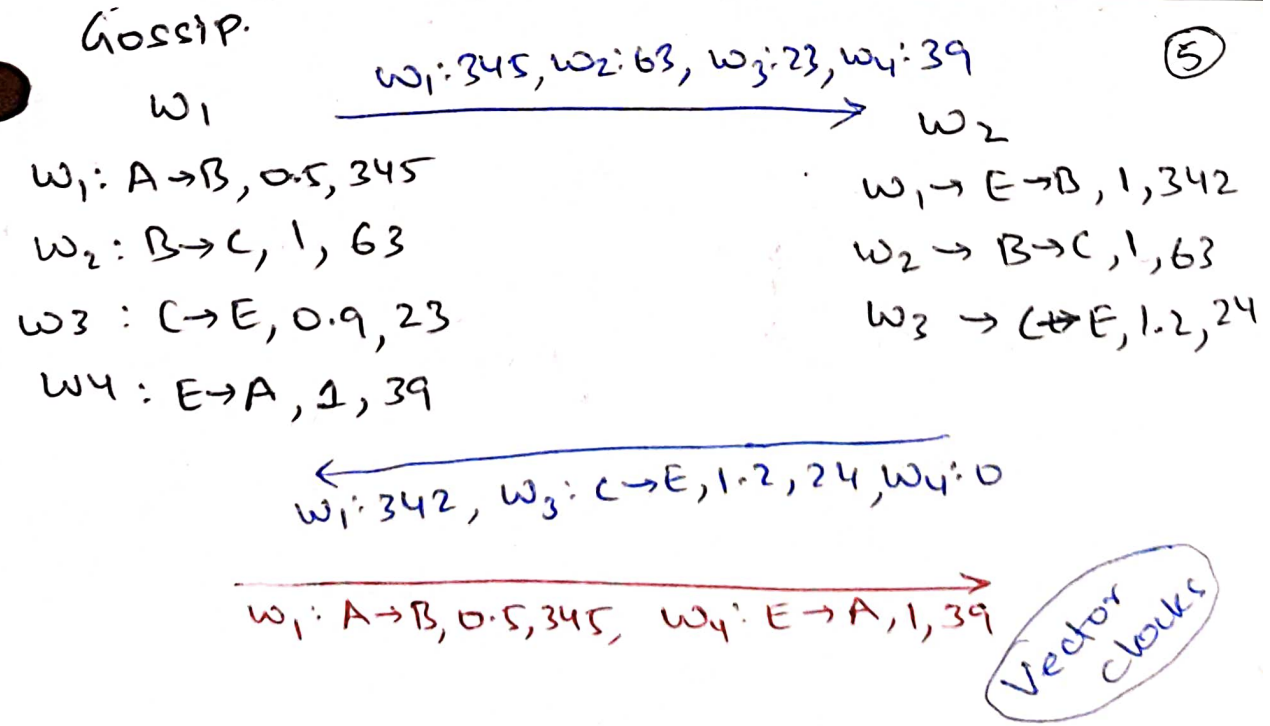 Gossip.
w₁:345, w₂:63, w₃:23, w₄:39
⑤
w₁
w₂
w₁: A→B, 0.5, 345
w₂: B→C, 1, 63
w3 : C→E, 0.9, 23
w4 : E→A, 1, 39
w₁→ E→B, 1, 342
w₂ → B→C, 1, 63
w₃ → C→E, 1.2, 24
w₁: 342, w₃: C→E, 1.2, 24, w₄: 0
w₁: A→B, 0.5, 345, w₄: E→A, 1, 39
Vector
clocks